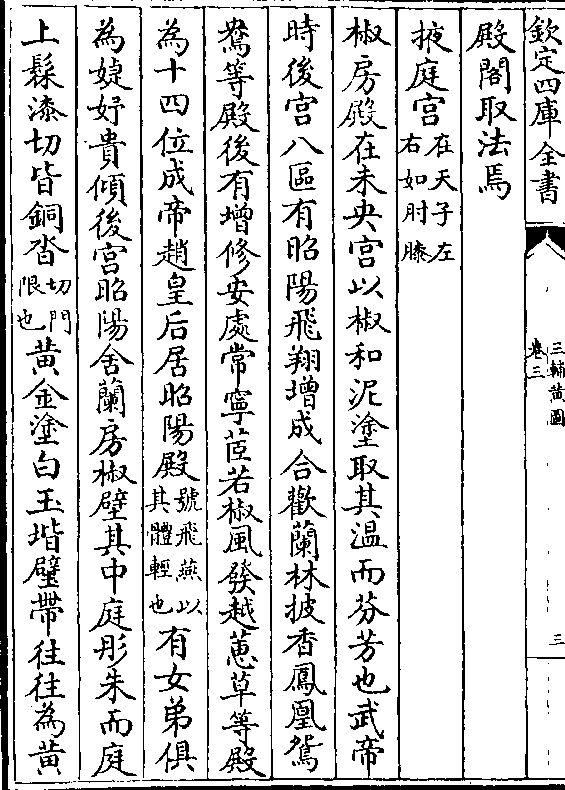 欽定四庫全書
三輔黃圖
卷三
三
殿閣取法焉
掖庭宮在天子左右如肘膝
椒房殿在未央宮以椒和泥塗取其溫而芬芳也武帝
時後宮八區有昭陽飛翔增成合歡蘭林披香鳳凰鴛
鴦等殿後有增修安處常寧茝若椒風發越蕙草等殿
為十四位成帝趙皇后居昭陽殿號飛燕以其體輕也有女弟俱
為婕妤貴傾後宮昭陽舍蘭房椒壁其中庭彤朱而庭
上髹漆切皆銅沓切門限也黃金塗白玉堦壁帶往往為黃